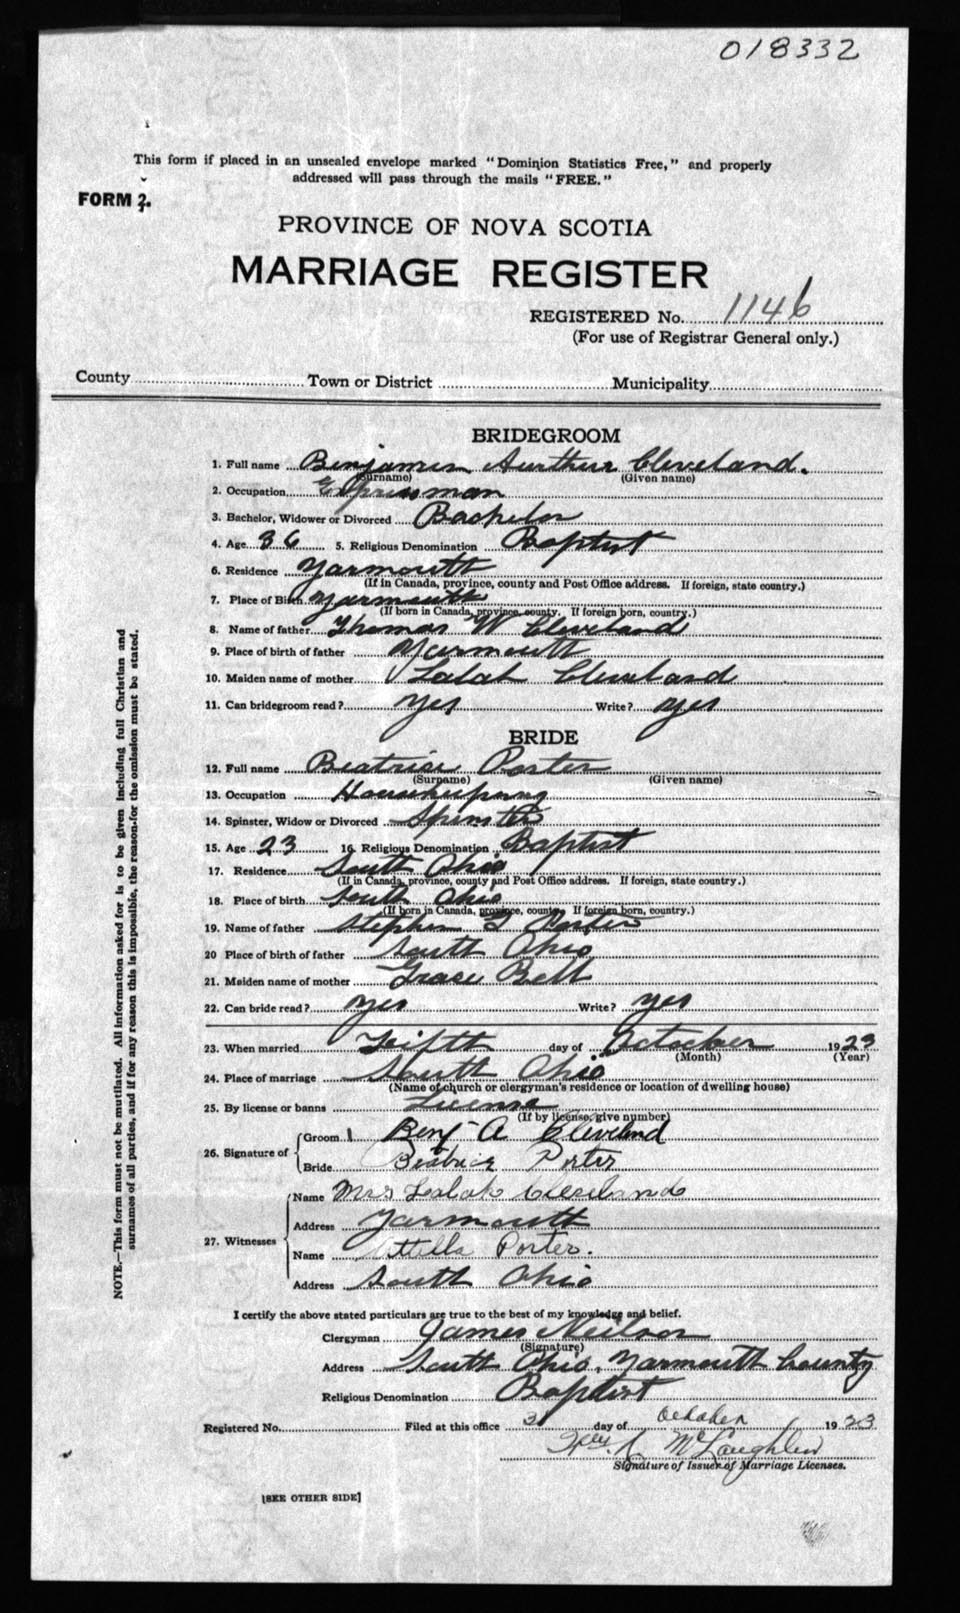 018332
This form if placed in an unsealed envelope marked "Dominion Statistics Free," and properly
addressed will pass through the mails "FREE."
FORM 2.
PROVINCE OF NOVA SCOTIA
MARRIAGE REGISTER
REGISTERED No. 1146
(For use of Registrar General only.)
County Town or District Municipality
NOTE.—This form must not be mutilated. All information asked for is to be given including full Christian and
surnames of all parties, and if for any reason this is impossible, the reason for the omission must be stated.
BRIDEGROOM
1. Full name Benjamin Aurthur Cleveland.
(Surname) (Given name)
2. Occupation Expressman
3. Bachelor, Widower or Divorced Bachelor
4. Age 36 5. Religious Denomination Baptist
6. Residence Yarmouth
(If in Canada, province, county and Post Office address. If foreign, state country.)
7. Place of Birth Yarmouth
(If born in Canada, province, county. If foreign born, country.)
8. Name of father Thomas W Cleveland
9. Place of birth of father Yarmouth
10. Maiden name of mother Lalah Cleveland
11. Can bridegroom read? yes Write? yes
BRIDE
12. Full name Beatrice Porter
(Surname) (Given name)
13. Occupation Housekeeping
14. Spinster, Widow or Divorced Spinster
15. Age 23 16. Religious Denomination Baptist
17. Residence South Ohio
(If in Canada, province, county and Post Office address. If foreign, state country.)
18. Place of birth South Ohio
(If born in Canada, province, county. If foreign born, country.)
19. Name of father Stephen Porter
20 Place of birth of father South Ohio
21. Maiden name of mother Grace Bell
22. Can bride read? yes Write? yes
23. When married Fifth day of October 1923
(Month) (Year)
24. Place of marriage South Ohio
(Name of church or clergyman's residence or location of dwelling house)
25. By license or banns License
(If by license, give number)
26. Signature of Groom Benj A Cleveland
Bride Beatrice Porter
27. Witnesses Name Mrs Lalah Cleveland
Address Yarmouth
Name Porter.
Address South Ohio
I certify the above stated particulars are true to the best of my knowledge and belief.
Clergyman James Neilson
(Signature)
Address South Ohio, Yarmouth County
Religious Denomination Baptist
Registered No. Filed at this office day of October 1923
McLaughlin
Signature of Issuer of Marriage Licenses.
[SEE OTHER SIDE]